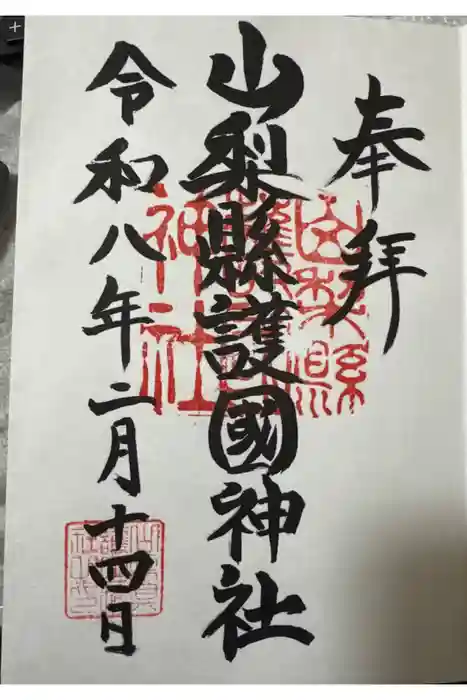 奉拝
山梨縣護國神社
山梨縣護國神社
令和八年二月十四日